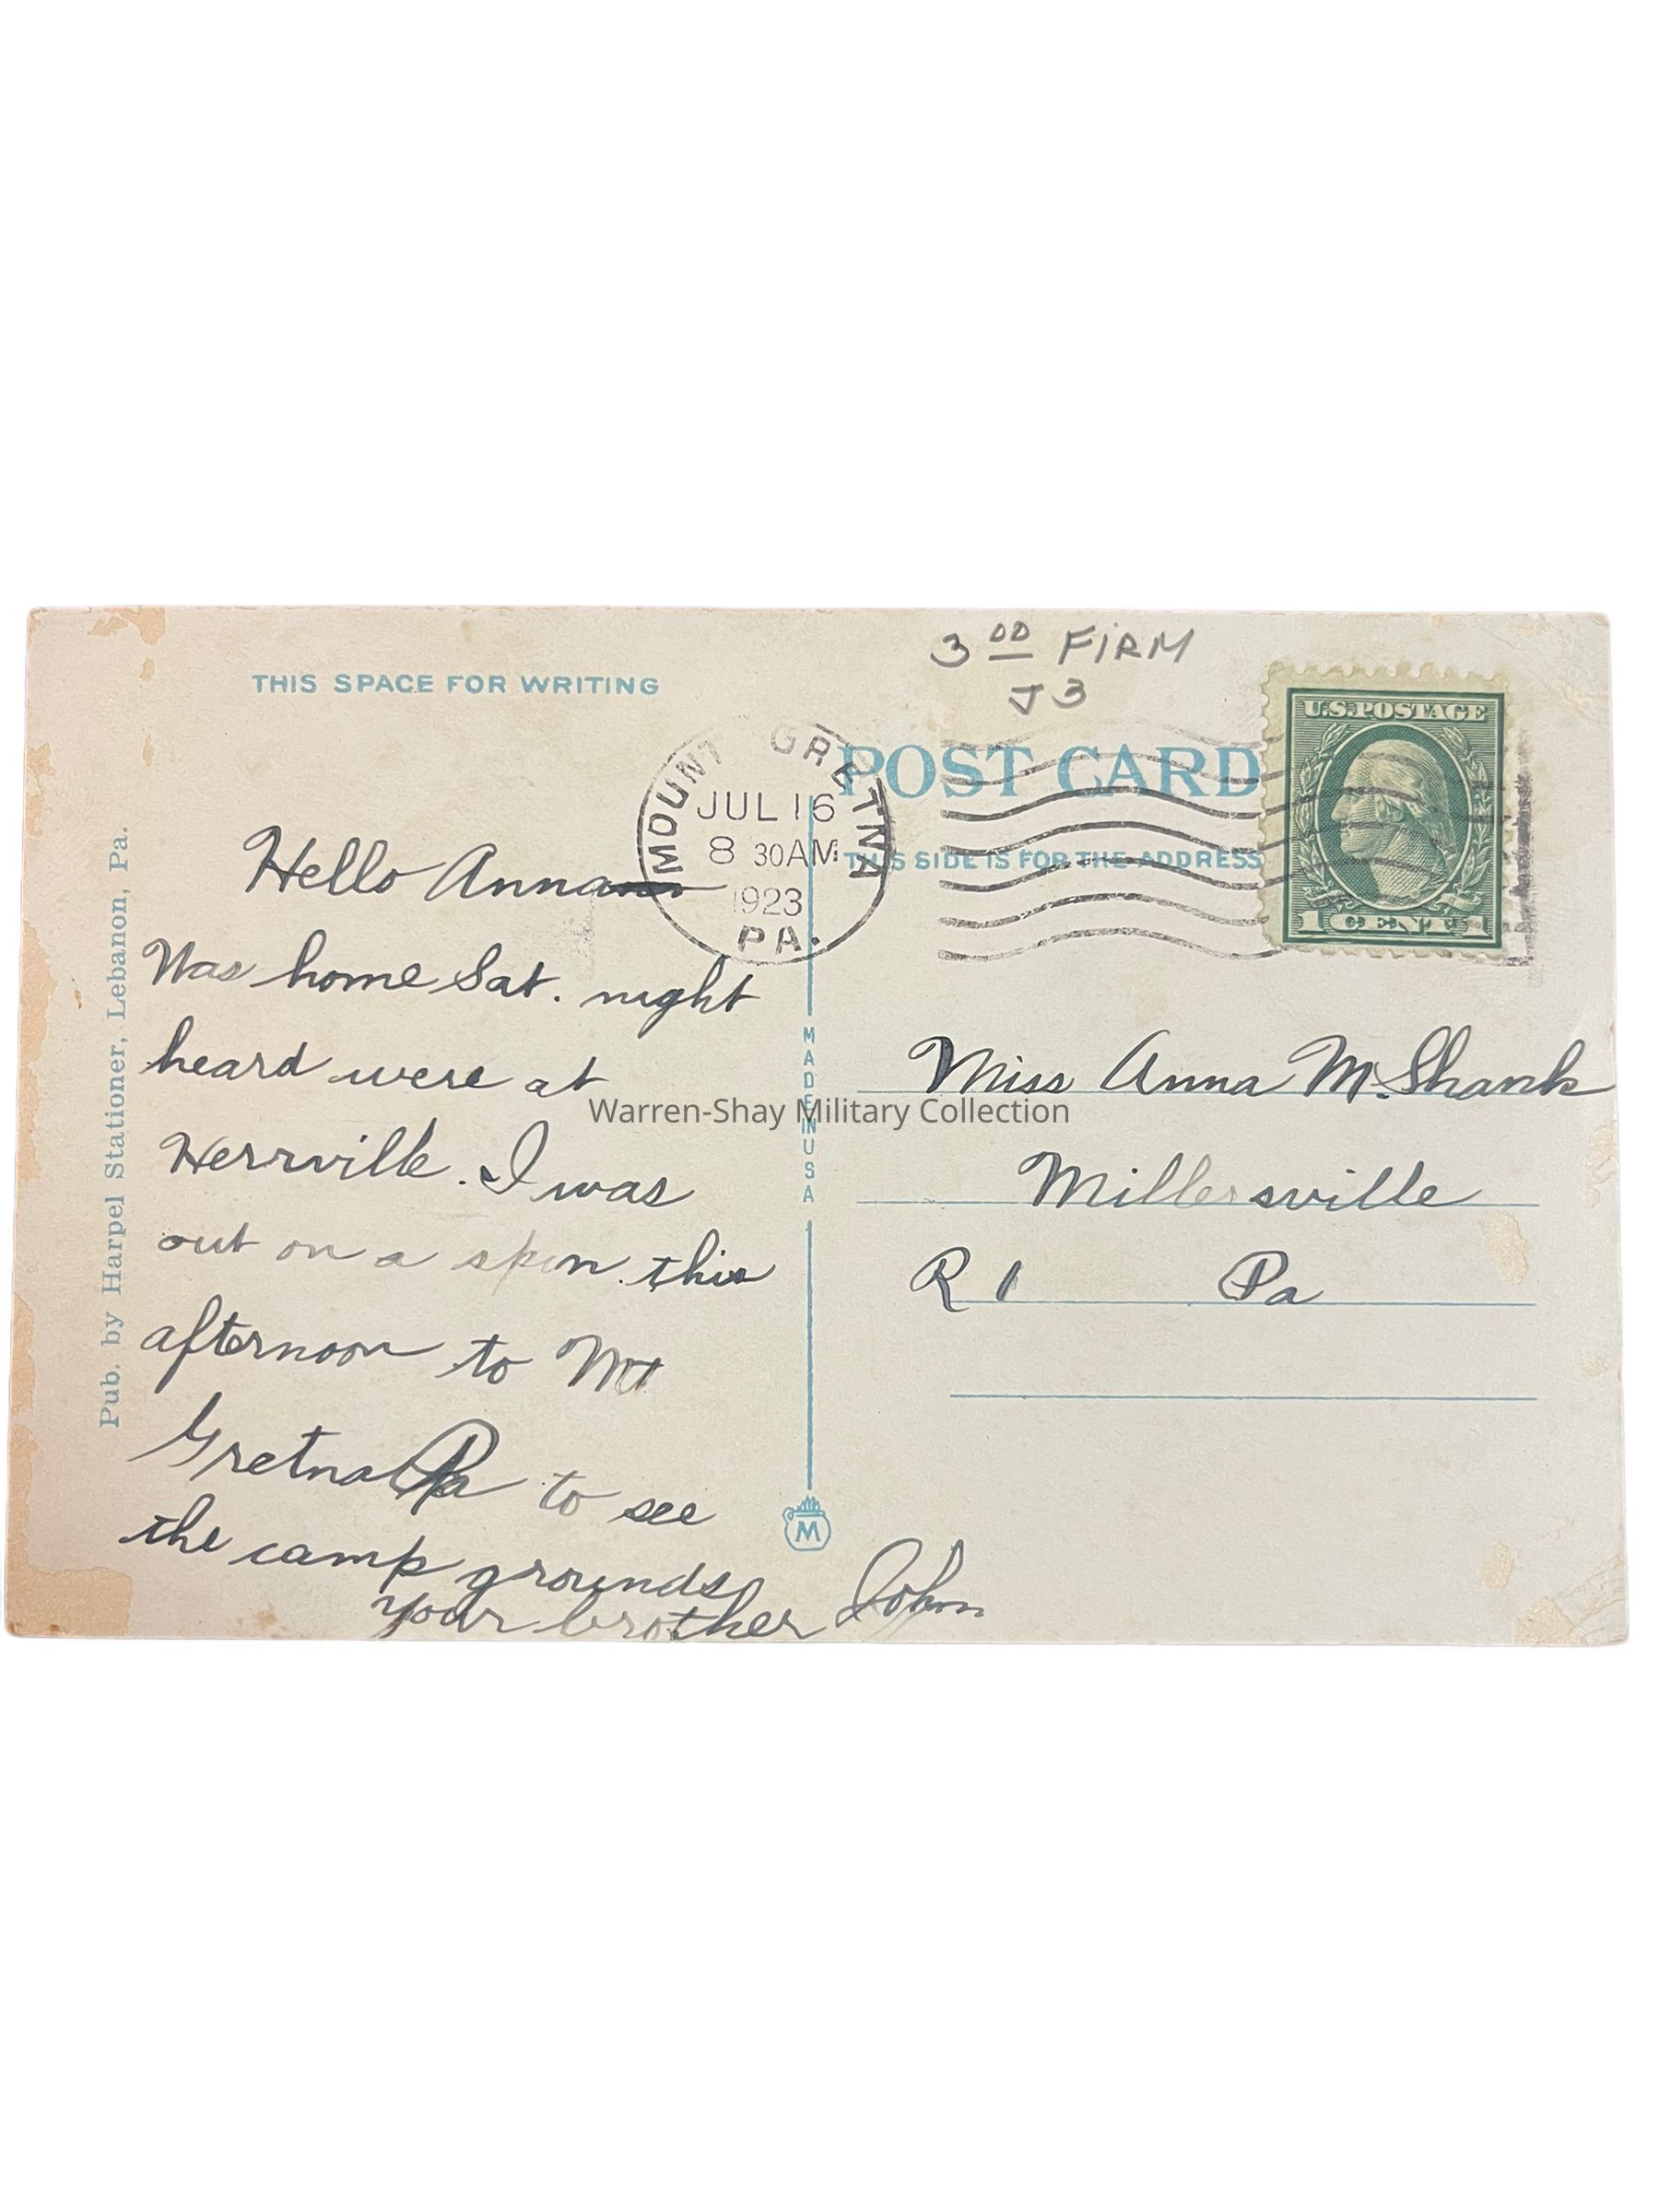 3 00 FIRM
J3
THIS SPACE FOR WRITING
U.S. POSTAGE
1 CENT 1
MOUNT GRETNA
JUL 16
8 30 AM
1923
PA.
POST CARD
THIS SIDE IS FOR THE ADDRESS
Hello Anna
Was home Sat. night
heard were at
Herrville. I was
out on a spin this
afternoon to Mt
Gretna Pa to see
the camp grounds
Your brother John
Miss Anna M. Shank
Millersville
R 1 Pa
MADE IN USA
M
Pub. by Harpel Stationer, Lebanon, Pa.
Warren-Shay Military Collection